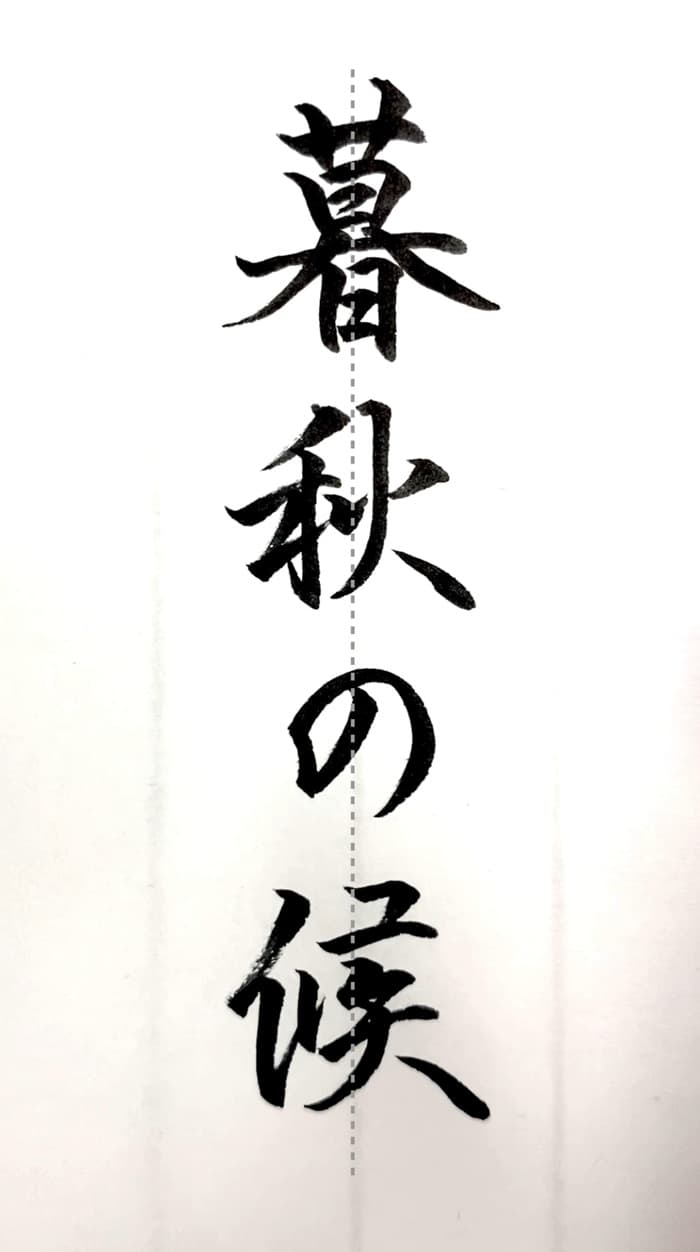 暮秋の候